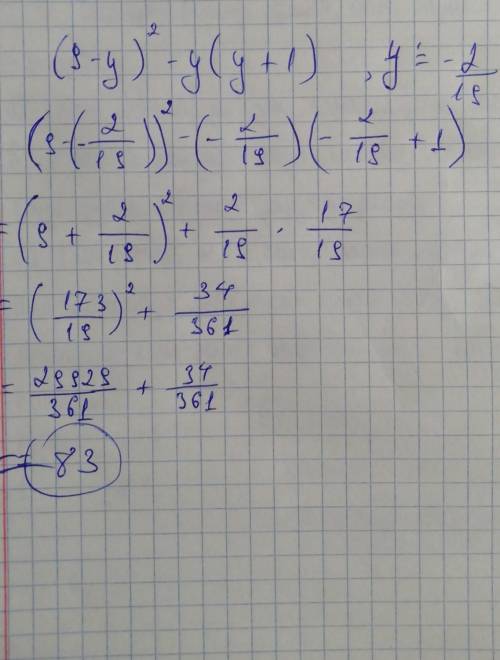 (9-y)² - y(y+1) , y = -2/19
(9-(-2/19))² - (-2/19)(-2/19 + 1)
= (9 + 2/19)² + 2/19 · 17/19
= (173/19)² + 34/361
= 29929/361 + 34/361
= 83